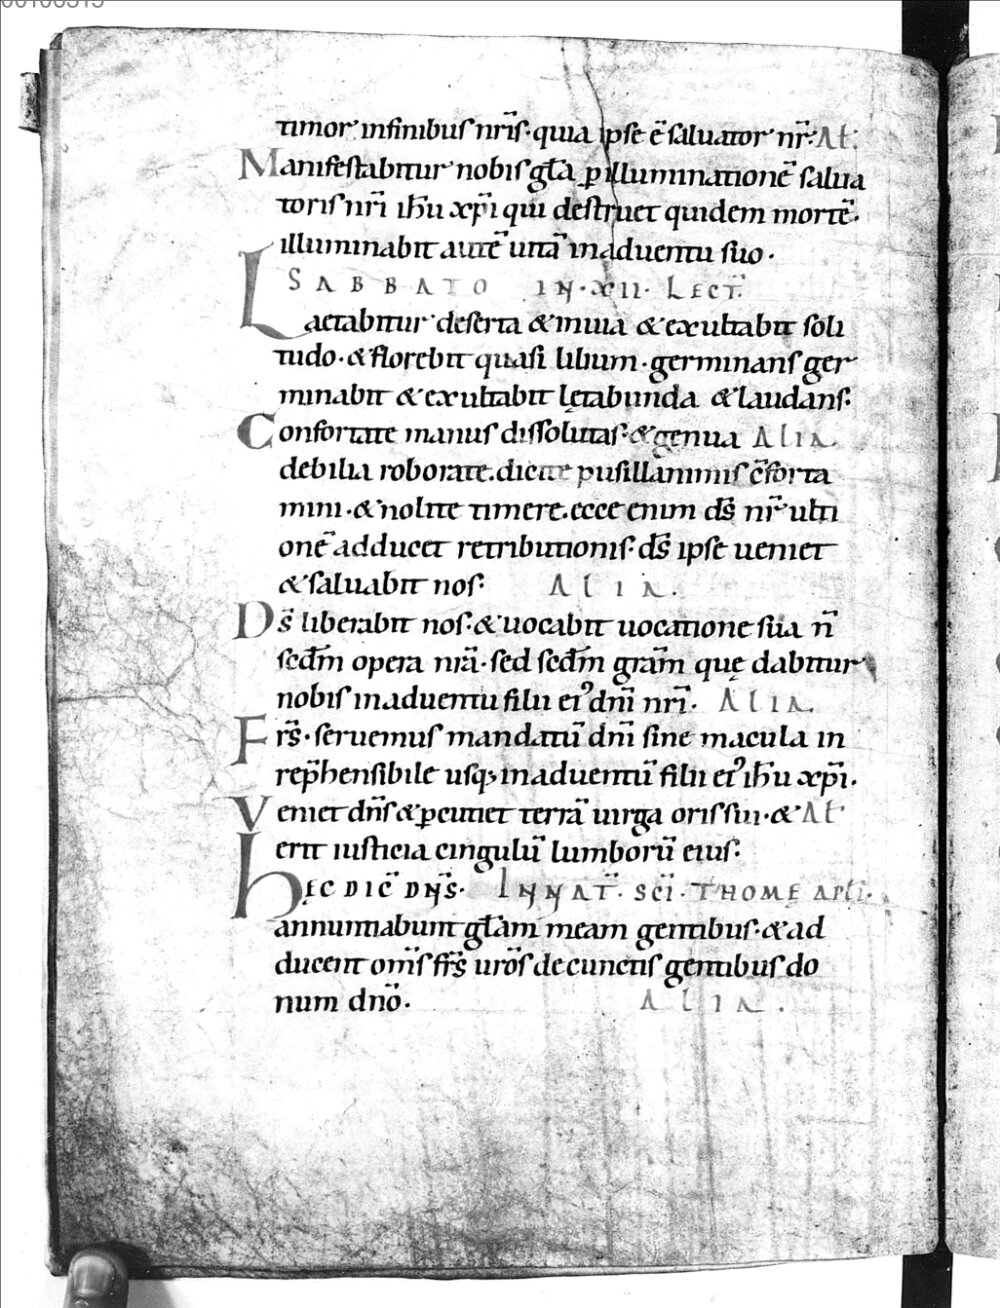 00106315
timor infinibuſ nr̄iſ· quia ipſe ē ſaluator nr̄· At·
Manifeſtabitur nobiſ gła p̱ illuminationē ſalua
toriſ nr̄i ih̄u xp̄i qui deſtruet quidem mortē·
illuminabit autē uitā inaduentu ſuo·
SABBATO IN·XII· LECT̄
Laetabitur deſerta & inuia & exultabit ſoli
tudo· & florebit quaſi lilium· germinanſ ger
minabit & exultabit lętabunda & laudanſ·
Confortate manuſ diſſolutaſ· & genua ALIA.
debilia roborate. dicite puſillanimiſ c̄forta
mini· & nolite timere. ecce enim dſ̄ nr̄ ulti
onē adducet retributioniſ· dſ̄ ipſe ueniet
& ſaluabit noſ· ALIA.
Dſ̄ liberabit noſ· & uocabit uocatione ſua n̄
ſcd̄m opera nr̄a· ſed ſcd̄m gr̄am quę dabitur
nobiſ inaduentu filii ei᾽ dn̄i nr̄i· ALIA.
Frſ̄· ſeruemuſ mandatū dn̄i ſine macula in
rep̄henſibile uſq; inaduentū filii ei᾽ ih̄u xp̄i.
Veniet dn̄ſ & p̱cutiet terrā uirga oriſ ſui· & At
erit iuſticia cingulū lumborū eiuſ·
hĘC DIC̄ DN̄S· INNAT̄· SC̄I· THOMĘ APLI·
annuntiabunt głam meam gentibuſ· & ad
ducent om̄ſ fr̄ſ ur̄oſ de cunctiſ gentibuſ do
num dn̄o· ALIA.